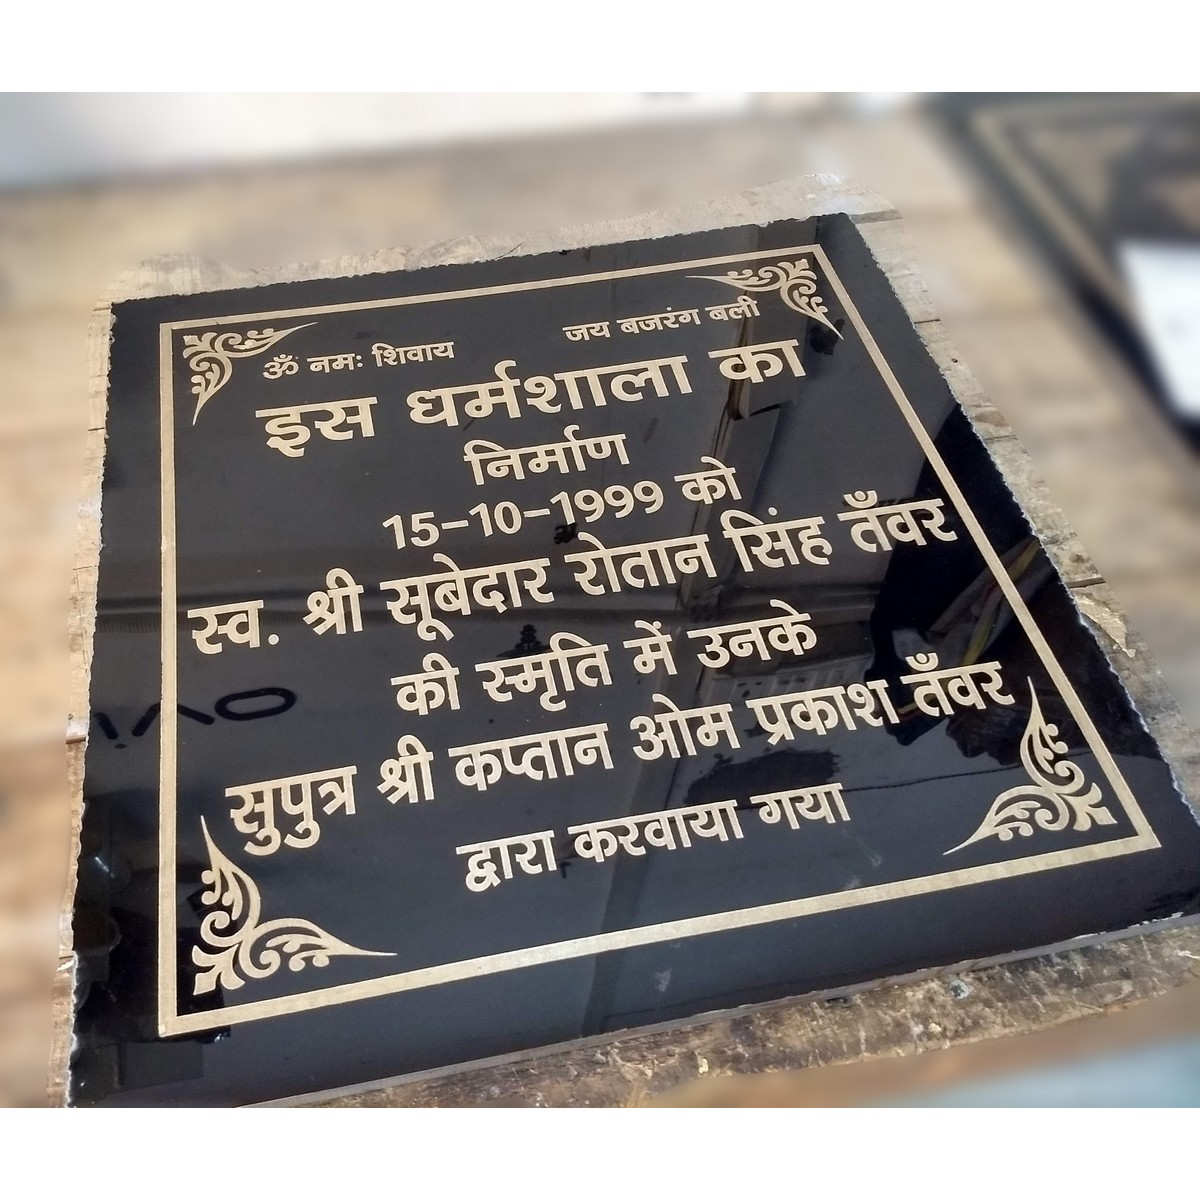 ॐ नमः शिवाय जय बजरंग बली
इस धर्मशाला का
निर्माण
15-10-1999 को
स्व. श्री सूबेदार रोतान सिंह तँवर
की स्मृति में उनके
सुपुत्र श्री कप्तान ओम प्रकाश तँवर
द्वारा करवाया गया